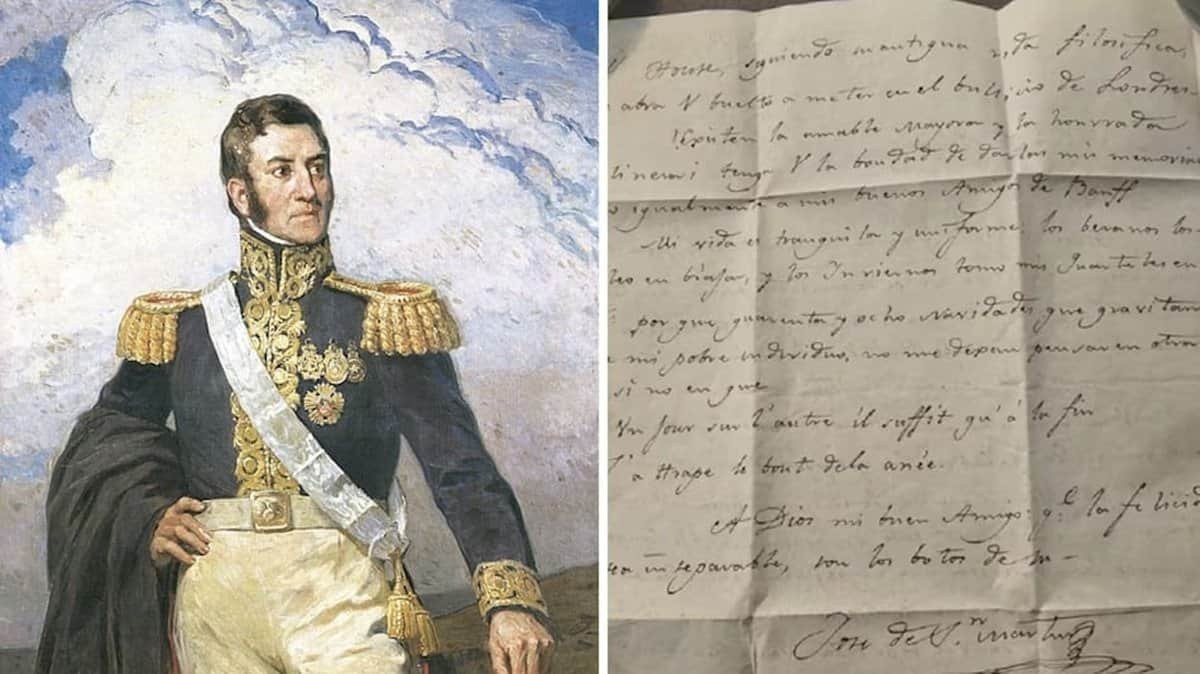 House, siguiendo mantigua vida filosifica,
abra V buelto a meter en el bullicio de Londres
Existen la amable Mayora y la honrrada
linera; tenga V la bondad de darlas mis memorias
igualmente a mis buenos Amigos de Banff
Mi vida es tranquila y uniforme, los beranos los
eo en biajar, y los Inviernos tomo mis Quarteles en
por que quarenta y ocho navidades que gravitan
mi pobre individuo, no me dexan pensar en otra
si no en que
Un Jour sur l'autre il suffit qu'á la fin
l'atrape le bout dela anée.
A Dios mi buen Amigo: q.e la felicid
ea inseparable, son los botos de m-
Jose de S.n Martin